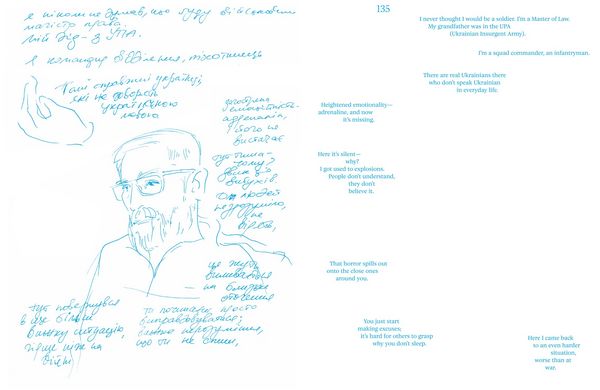 я ніколи не думав, що буду військовим
магістр права
мій дід - з УПА.
я командир відділення, піхотинець
Такі справжні українці,
які не говорять
українською
мовою
загострена
емоційність-
адреналін,
його не
вистачає
тут тиша-
чому?
звик до
вибухів.
людей
не розуміло,
не
вірять,
ця жуть
виливається
на близьке
оточення
ти починаєш просто
виправдовуватись;
важко зрозуміти,
що ти не спиш,
тут повернувся
в ще більш
важку ситуацію,
гірше ніж на
війні
135
I never thought I would be a soldier. I'm a Master of Law.
My grandfather was in the UPA
(Ukrainian Insurgent Army).
I'm a squad commander, an infantryman.
There are real Ukrainians there
who don't speak Ukrainian
in everyday life.
Heightened emotionality—
adrenaline, and now
it's missing.
Here it's silent—
why?
I got used to explosions.
People don't understand,
they don't
believe it.
That horror spills out
onto the close ones
around you.
You just start
making excuses;
it's hard for others to grasp
why you don't sleep.
Here I came back
to an even harder
situation,
worse than at
war.